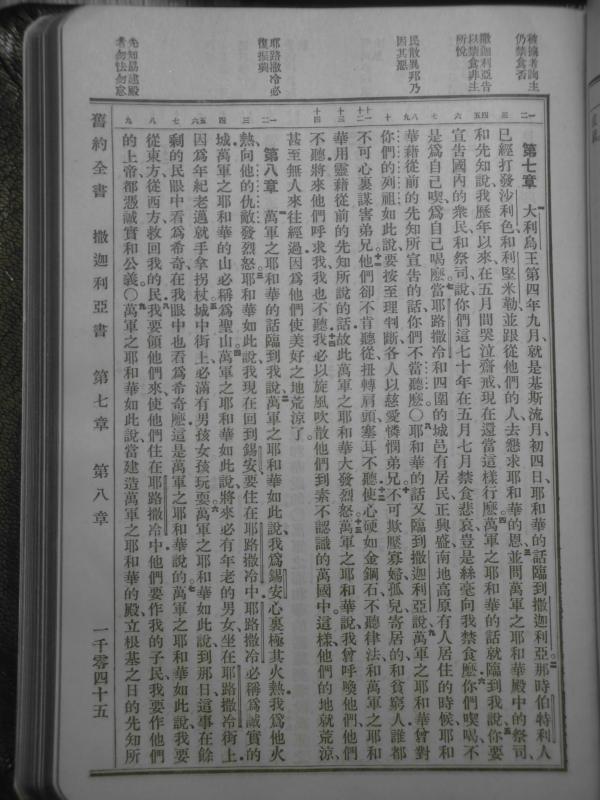 被擄者詢主
仍禁食否
撒迦利亞告
以禁食非主
所悅
民散異邦乃
因其惡
耶路撒冷必
復振興
先知勗建殿
者勿怯勿怠
第七章 大利烏王第四年九月就是基斯流月初四日耶和華的話臨到撒迦利亞那時伯特利人
已經打發沙利色和利堅米勒並跟從他們的人去懇求耶和華的恩並問萬軍之耶和華殿中的祭司
和先知說我歷年以來在五月間哭泣齋戒現在還當這樣行麽萬軍之耶和華的話就臨到我說你要
宣告國內的衆民和祭司說你們這七十年在五月七月禁食悲哀豈是絲毫向我禁食麽你們喫喝不
是爲自己喫爲自己喝麽當耶路撒冷和四圍的城邑有居民正興盛南地高原有人居住的時候耶和
華藉從前的先知所宣告的話你們不當聽麽〇耶和華的話又臨到撒迦利亞說萬軍之耶和華曾對
你們的列祖如此說要按至理判斷各人以慈愛憐憫弟兄不可欺壓寡婦孤兒寄居的和貧窮人誰都
不可心裏謀害弟兄他們卻不肯聽從扭轉肩頭塞耳不聽使心硬如金鋼石不聽律法和萬軍之耶和
華用靈藉從前的先知所說的話故此萬軍之耶和華大發烈怒萬軍之耶和華說我曾呼喚他們他們
不聽將來他們呼求我我也不聽我必以旋風吹散他們到素不認識的萬國中這樣他們的地就荒涼
甚至無人來往經過因爲他們使美好之地荒涼了
第八章 萬軍之耶和華的話臨到我說萬軍之耶和華如此說我爲錫安心裏極其火熱我爲他火
熱向他的仇敵發烈怒耶和華如此說我現在回到錫安要住在耶路撒冷中耶路撒冷必稱爲誠實的
城萬軍之耶和華的山必稱爲聖山萬軍之耶和華如此說將來必有年老的男女坐在耶路撒冷街上
因爲年紀老邁就手拿拐杖城中街上必滿有男孩女孩玩耍萬軍之耶和華如此說到那日這事在餘
剩的民眼中看爲希奇在我眼中也看爲希奇麽這是萬軍之耶和華說的萬軍之耶和華如此說我要
從東方從西方救回我的民我要領他們來使他們住在耶路撒冷中他們要作我的子民我要作他們
的上帝都憑誠實和公義〇萬軍之耶和華如此說當建造萬軍之耶和華的殿立根基之日的先知所
舊約全書 撒迦利亞書 第七章 第八章 一千零四十五